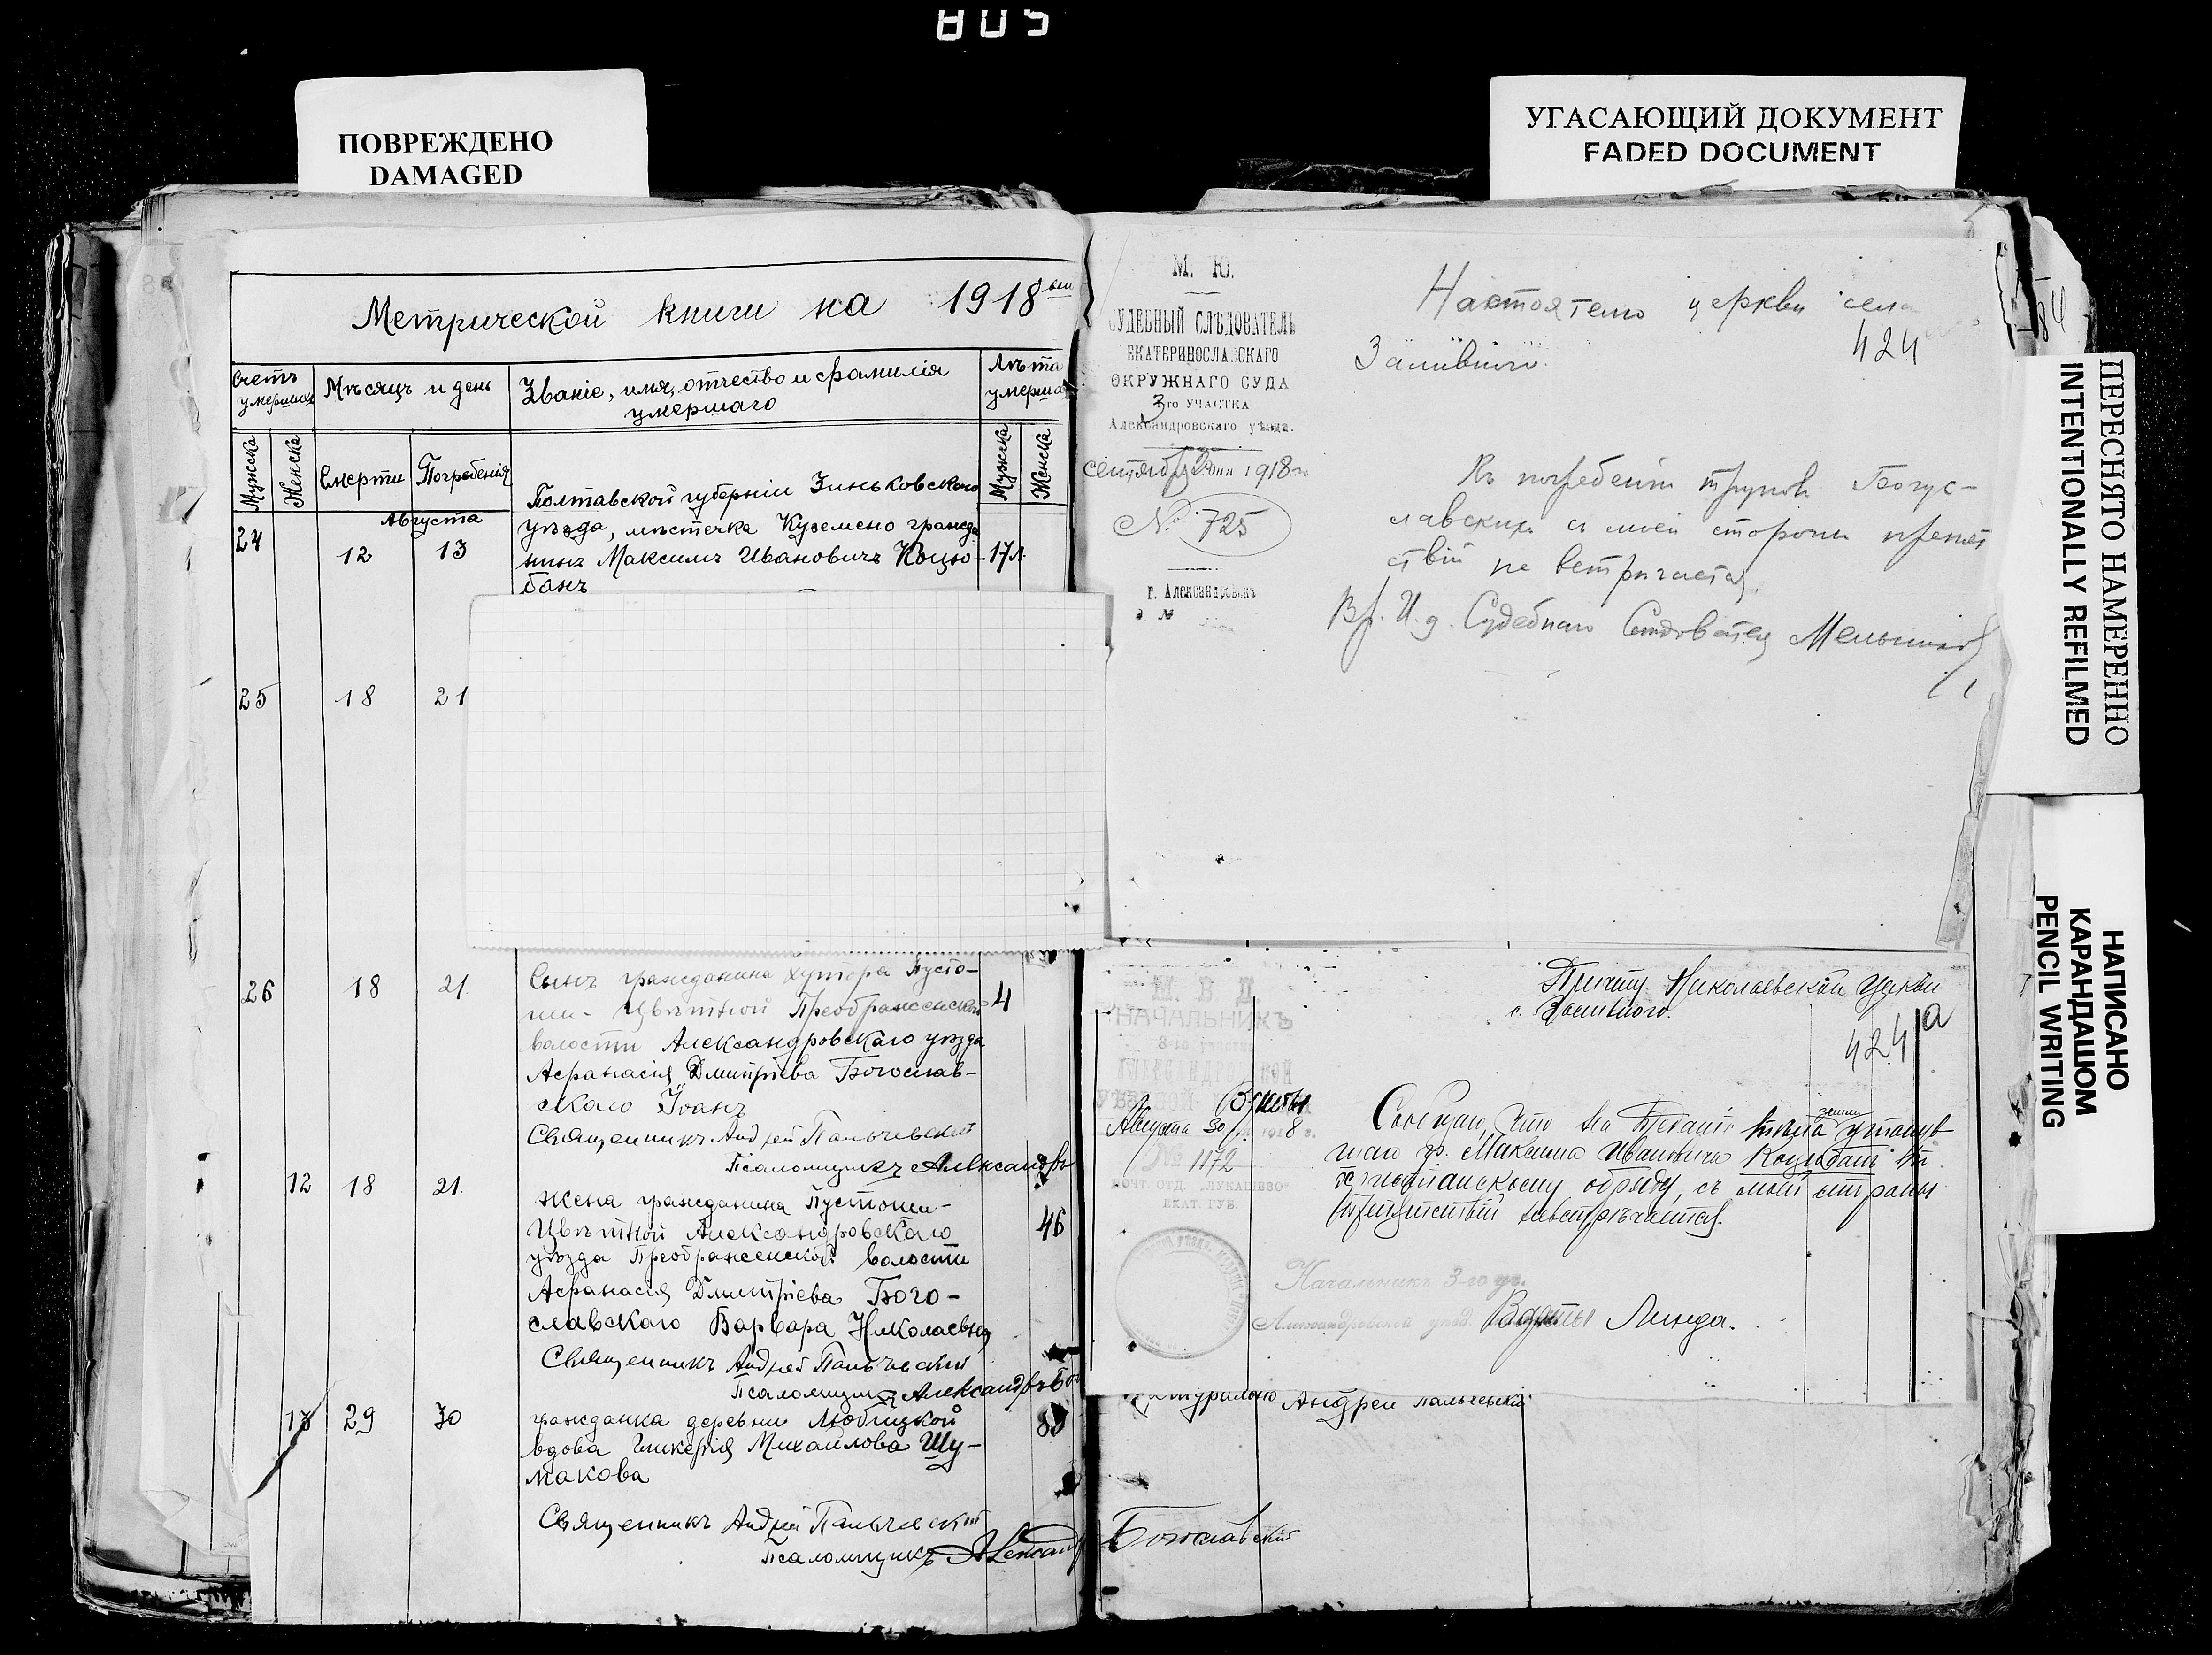 ПОВРЕЖДЕНО
DAMAGED
УГАСАЮЩИЙ ДОКУМЕНТ
FADED DOCUMENT
ПЕРЕСНЯТО НАМЕРЕННО
INTENTIONALLY REFILMED
НАПИСАНО
КАРАНДАШОМ
PENCIL WRITING
Метрической книги на 1918
Счетъ умершихъ
Мѣсяцъ и день
Званіе, имя, отчество и фамилія
умершаго
Лѣта
Мужска
Женска
Смерти
Погребенія
Мужска
Женска
Августа
24 12 13
Полтавской губерніи Зиньковского
уѣзда, мѣстечка Куземено гражда
нинъ Максимъ Ивановичъ Коцю-
банъ
17 л
25 18 21
26 18 21.
Сынъ гражданина хутора Пусто-
ши-Цвѣтной Преображенской
волости Александровскаго уѣзда
Афанасія Дмитріева Богослав-
скаго Іоанъ
4
Священникъ Андрей Пальчевскій
Псаломщикъ Александръ
12 18 21.
Жена гражданина Пустоши-
Цвѣтной Александровскаго
уѣзда Преображенской волости
Афанасія Дмитріева Бого-
славскаго Варвара Николаевна
46
Священникъ Андрей Пальчевскій
Псаломщикъ Александръ
13 29 30
гражданка деревни Любицкой
вдова Гликерія Михайлова Шу-
макова
80
Священникъ Андрей Пальчевскій
Псаломщикъ Александръ Богославскій
М. Ю.
СУДЕБНЫЙ СЛѢДОВАТЕЛЬ
ЕКАТЕРИНОСЛАВСКАГО
ОКРУЖНАГО СУДА
3 го УЧАСТКА
Александровскаго уѣзда.
сентября 1918
№ 725
г. Александровскъ
Настоятелю церкви села
424
Заливного.
Къ погребенію труповъ Богус-
лавскихъ съ моей стороны препят
ствій не встрѣчается
Вр. И. д. Судебнаго Слѣдователя
Причту Николаевской Церкви
с. Заливного.
424 а
М. В. Д.
НАЧАЛЬНИКЪ
Варты
Августа 30 1918 г.
№ 1172
ПОЧТ. ОТД. ЛУКАШЕВО
ЕКАТ. ГУБ.
Сообщаю, что на преданіе землѣ тѣла утонув
шаго гр. Максима Ивановича Коцюбанъ по
христіанскому обряду, съ моей стороны
препятствій не встрѣчается.
Начальникъ 3-го уч.
Александровской уѣзд. Варты Линда.
Андрей Пальчевскій